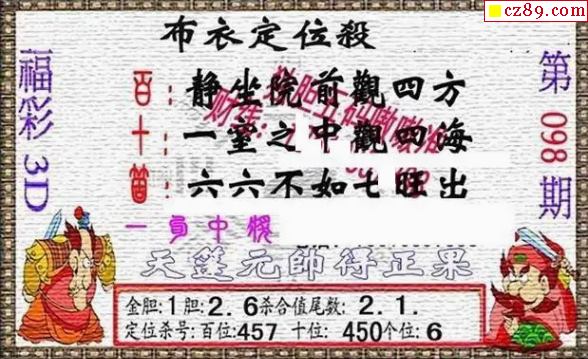 cz89.com
布衣定位殺
福彩3D
第098期
百：静坐院前觀四方
十：一室之中觀四海
个：六六不如七旺出
天篷元帥得正果
金胆:1胆:2.6杀合值尾数:2.1.
定位杀号:百位:457 十位:450个位:6